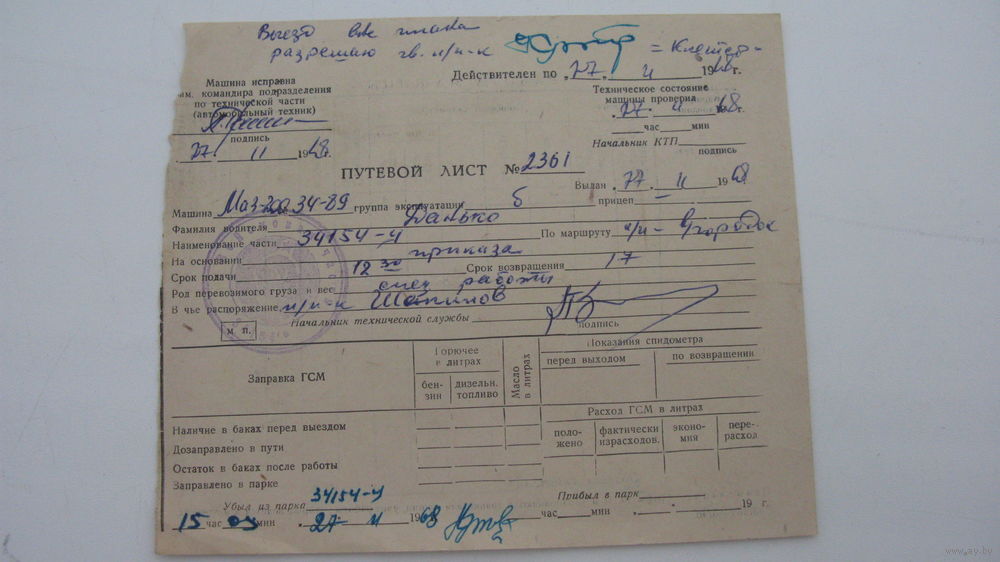 Выезд вне плана
разрешаю
Действителен по „27“ 11 1968 г.
Машина исправна
зам. командира подразделения
по технической части
(автомобильный техник)
подпись
27 11 1968 г.
Техническое состояние
машины проверил
27 11 68
час мин
Начальник КТП
подпись
ПУТЕВОЙ ЛИСТ № 2361
Выдан „27“ 11 1968
Машина Маз-200 34-89 группа эксплуатации б прицеп —
Фамилия водителя Данько
Наименование части 34154-У По маршруту
На основании приказа
Срок подачи 12 30 Срок возвращения 17
Род перевозимого груза и вес спец работы
В чье распоряжение
м п.
Начальник технической службы
подпись
Заправка ГСМ
Горючее
в литрах
бензин
дизельн. топливо
Масло в литрах
Показания спидометра
перед выходом
по возвращении
Расход ГСМ в литрах
положено
фактически израсходов.
экономия
перерасход
Наличие в баках перед выездом
Дозаправлено в пути
Остаток в баках после работы
Заправлено в парке
Убыл из парка 34154-У
Прибыл в парк
15 час 00 мин 27 11 1968
час мин 19 г.
www.ay.by